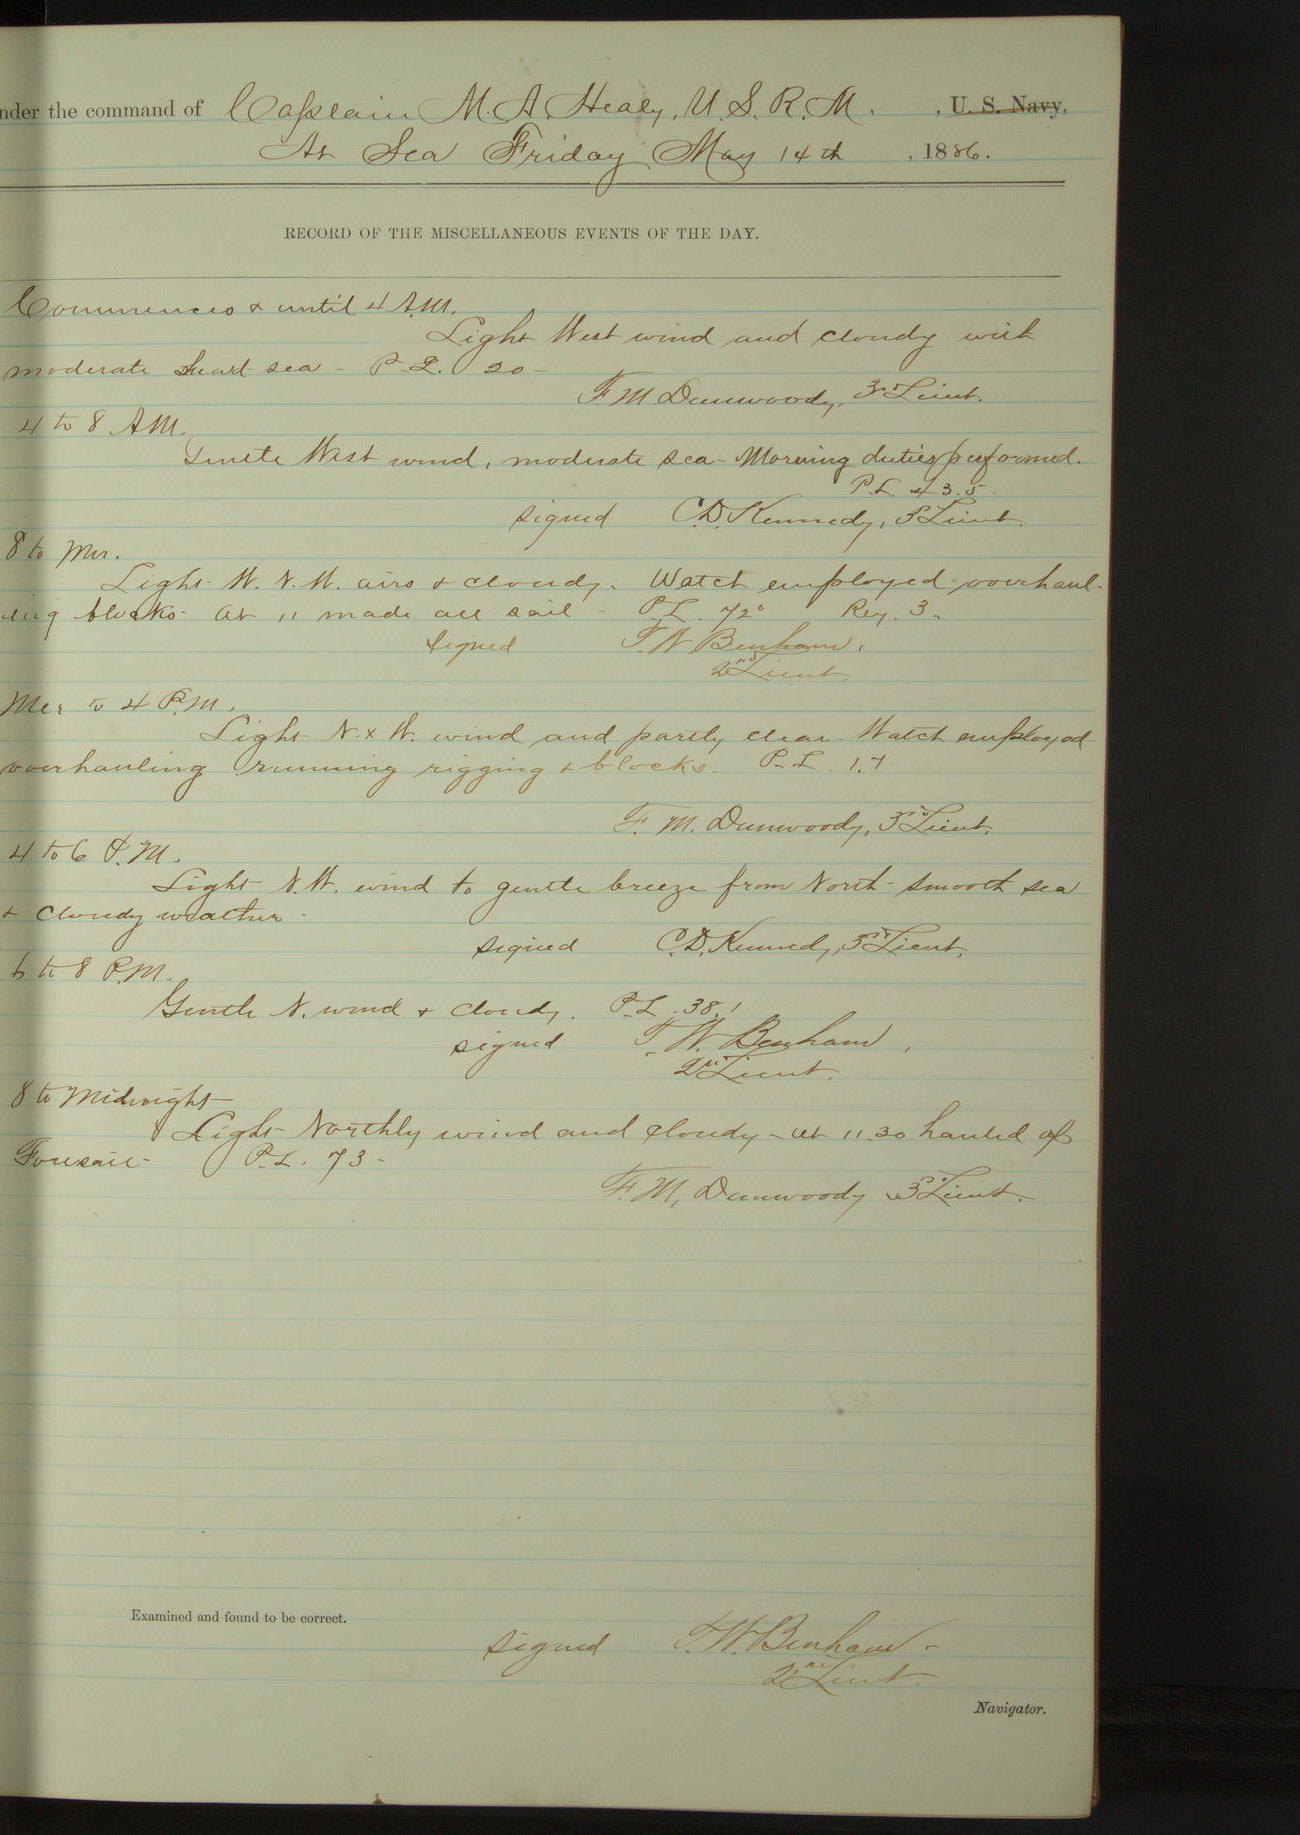 nder the command of Captain M. A. Healy, U. S. R. M. , U. S. Navy,
At Sea Friday May 14th , 1886.
RECORD OF THE MISCELLANEOUS EVENTS OF THE DAY.
Commences & until 4 A.M.
Light West wind and cloudy with
moderate head sea - P.L. 20 -
F. M. Dunwoody, 3rd Lieut.
4 to 8 A.M.
Gentle West wind, moderate sea - Morning duties performed.
P.L. 43.5.
signed C. D. Kennedy, 3d Lieut.
8 to Mer.
Light W. N. W. airs & cloudy. Watch employed overhaul-
ing blocks. At 11 made all sail - P.L. 72° Rev. 3.
signed T. W. Benham,
2nd Lieut.
Mer to 4 P.M.
Light N. x W. wind and partly clear. Watch employed
overhauling running rigging & blocks. P.L. 1.7
F. M. Dunwoody, 3rd Lieut.
4 to 6 P.M.
Light N.W. wind to gentle breeze from North - smooth sea
& cloudy weather -
signed C. D. Kennedy, 3rd Lieut.
6 to 8 P.M.
Gentle N. wind & cloudy. P.L. 38.1
signed T. W. Benham,
2nd Lieut.
8 to Midnight
Light Northly wind and cloudy - at 11.30 hauled up
Foresail - P.L. 73 -
F. M. Dunwoody 3rd Lieut.
Examined and found to be correct.
signed T. W. Benham -
2nd Lieut.
Navigator.